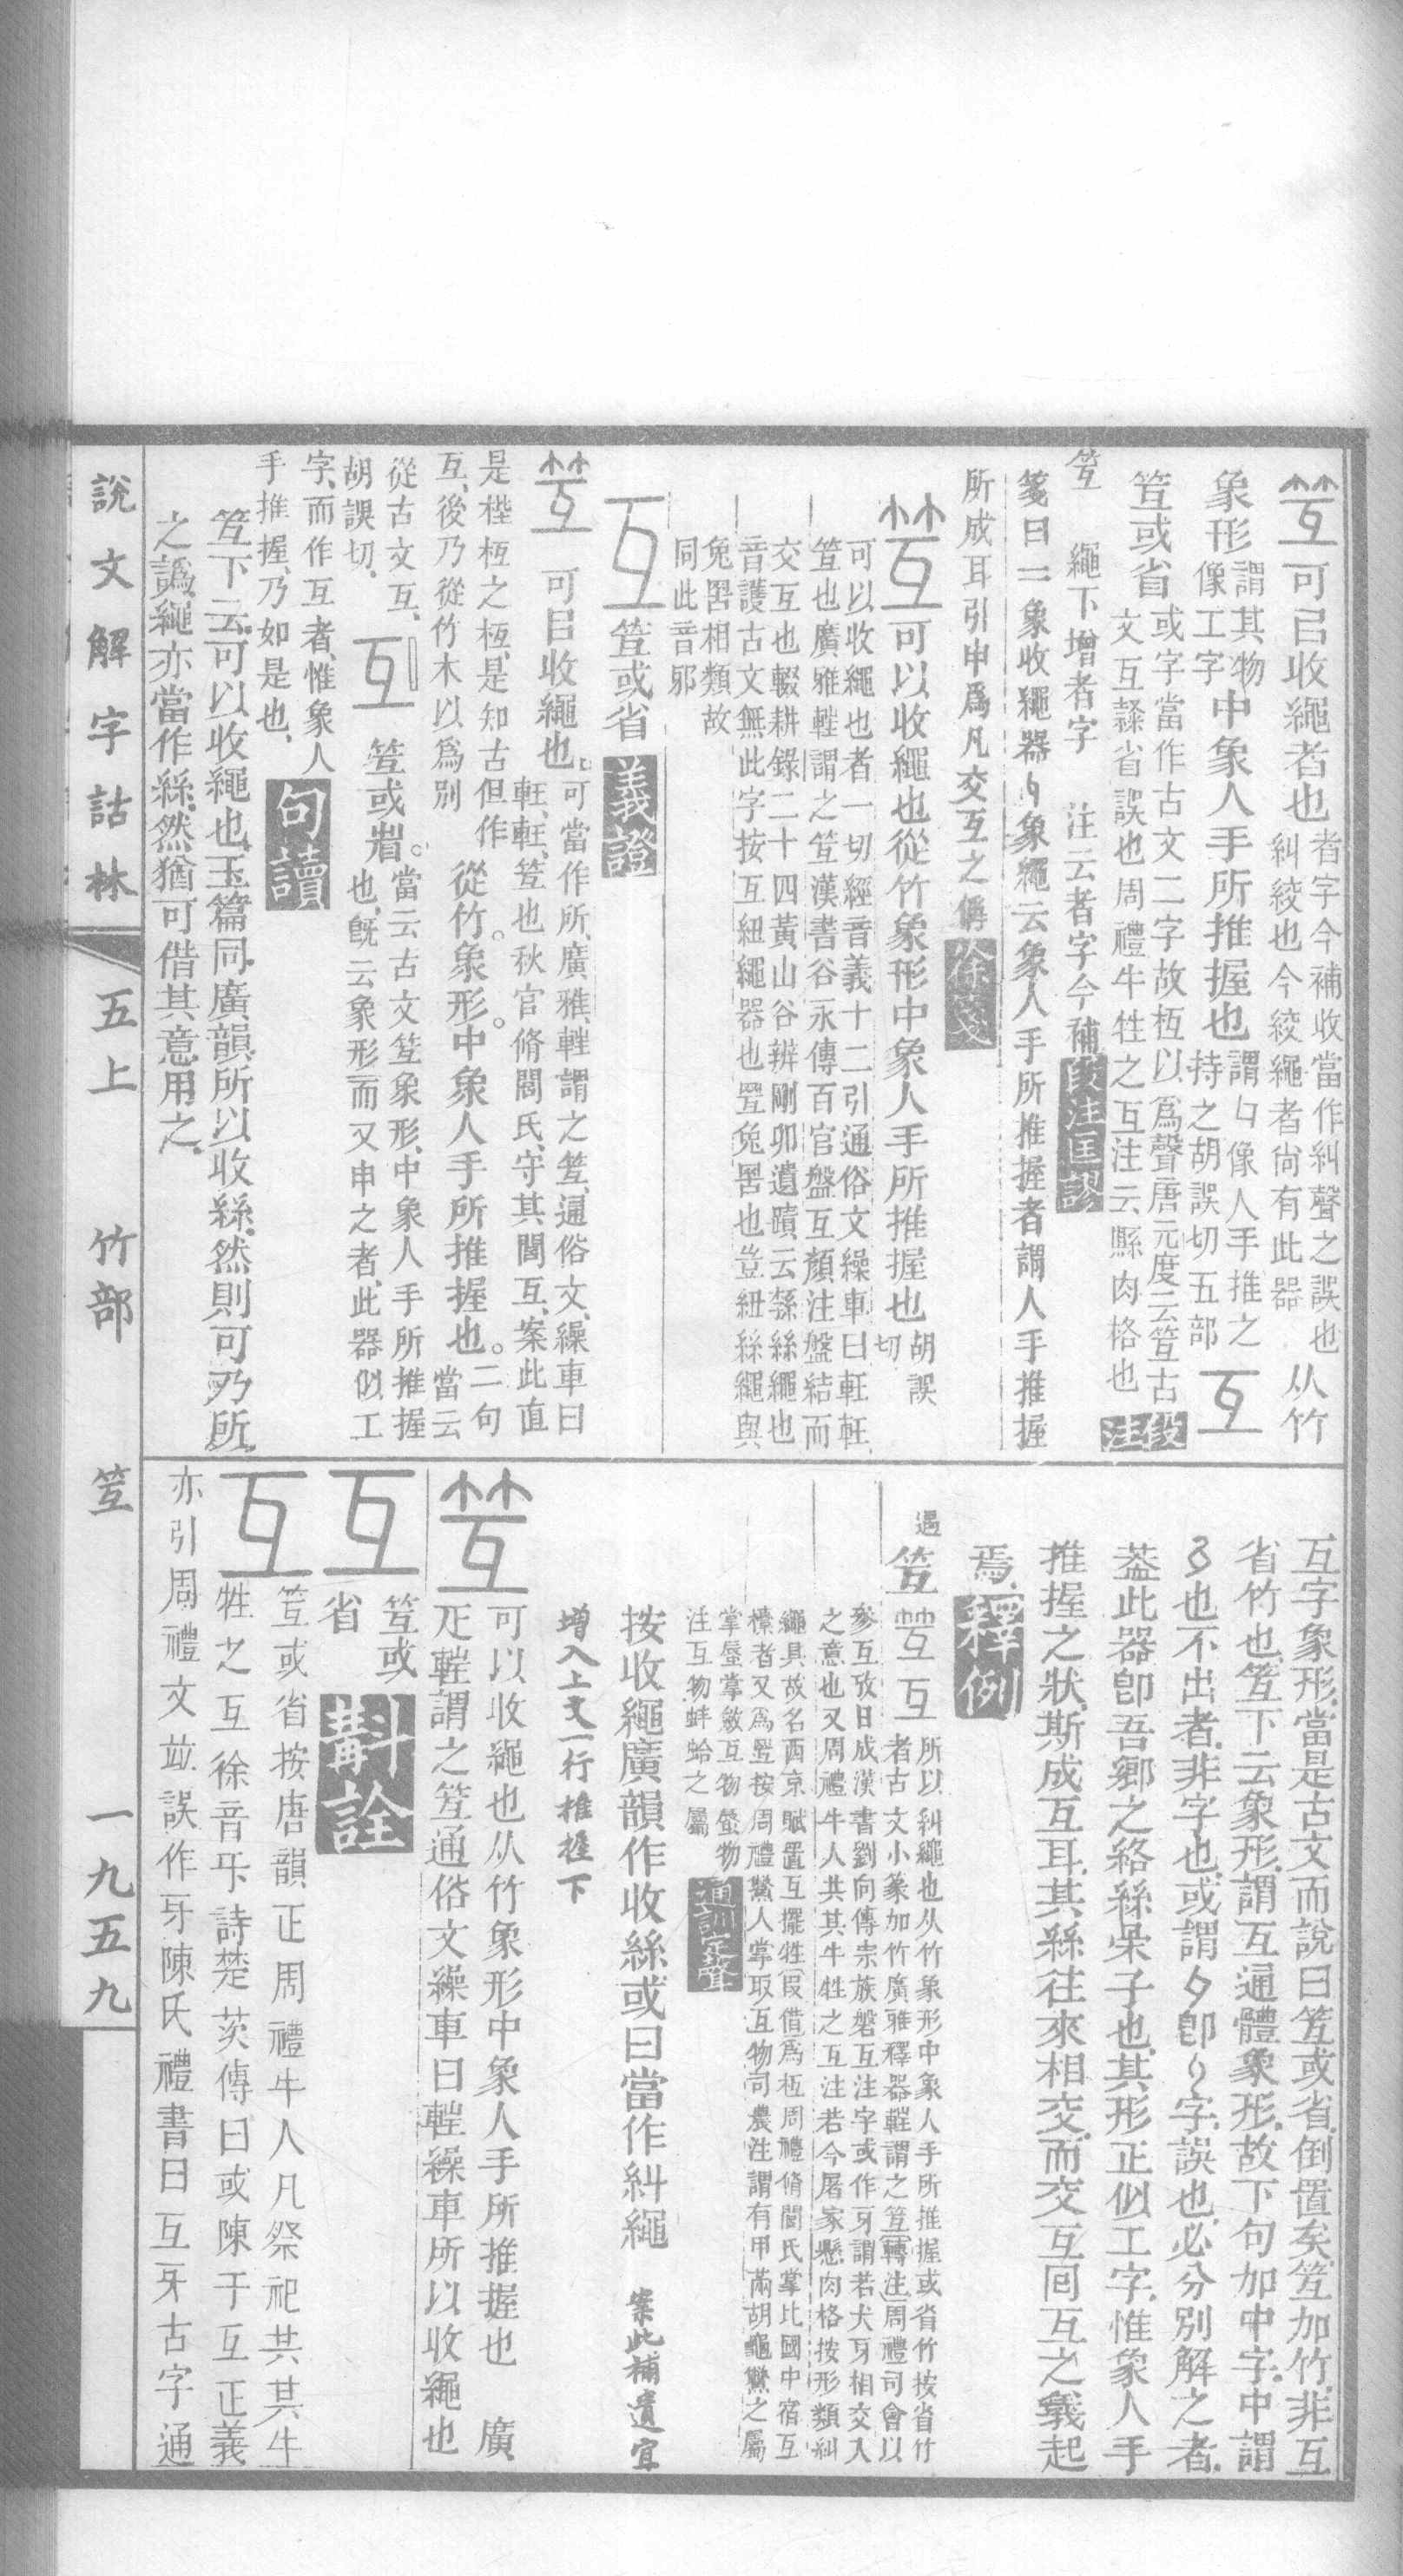 𥫗互可㠯收繩者也者字今補收當作糾聲之誤也糾絞也今絞繩者尚有此器从竹
象形謂其物像工字中象人手所推握也謂𠃑像人手推之持之胡誤切五部互
笠或省或字當作古文二字故枑以爲聲唐元度云笠古文互隸省誤也周禮牛牲之互注云縣肉格也段注
笠 繩下增者字 注云者字今補段注匡謬
箋曰二象收繩器象繩云象人手所推握者謂人手推握
所成耳引申爲凡交互之偁徐箋
笠可以收繩也從竹象形中象人手所推握也胡誤切
可以收繩也者一切經音義十二引通俗文繰車曰軖軖
笠也廣雅軠謂之笠漢書谷永傳百官盤互顏注盤結而
交互也輟耕錄二十四黃山谷辨剛卯遺蹟云綔絲繩也
音護古文無此字按互紐繩器也罝兔罟也豈紐絲繩與
兔罟相類故
同此音邪
互笠或省義證
笠可㠯收繩也。可當作所、廣雅、軠謂之笠、通俗文、繰車曰軖、軖、笠也秋官脩閭氏、守其閭互、案此直
是梐枑之枑、是知古但作互、後乃從竹木以爲別從竹。象形。中象人手所推握也。二句當云
從古文互、胡誤切、互笠或省。當云古文笠象形、中象人手所推握也、旣云象形而又申之者、此器似工
字、而作互者、惟象人手推握、乃如是也、句讀
笠下云、可以收繩也、玉篇同、廣韻、所以收絲、然則可乃所
之譌、繩亦當作絲、然猶可借其意用之、
互字象形、當是古文、而說曰笠或省、倒置矣、笠加竹、非互
省竹也、笠下云象形、謂互通體象形、故下句加中字、中謂
也、不出者、非字也、或謂卽字、誤也、必分別解之者、
葢此器卽吾鄉之絡絲杲子也、其形正似工字、惟象人手
推握之狀、斯成互耳、其絲往來相交、而交互回互之義起
焉、釋例
遇笠互所以糾繩也从竹象形中象人手所推握或省竹按省竹
者古文小篆加竹廣雅釋器軠謂之笠轉注周禮司會以
參互攷日成漢書劉向傳宗族磐互注字或作牙謂若犬牙相交入
之意也又周禮牛人共其牛牲之互注若今屠家懸肉格按形類糾
繩具故名西京賦置互擺牲叚借爲枑周禮脩閭氏掌比國中宿互
㯕者又爲㿿按周禮鱉人掌取互物司農注謂有甲㒼胡龜鱉之屬
掌蜃掌斂互物蜃物
注互物蚌蛤之屬通訓定聲
按收繩廣韻作收絲或曰當作糾繩 案此補遺宜
增入上文一行推握下
笠可以收繩也从竹象形中象人手所推握也 廣
疋軠謂之笠通俗文繰車曰軠繰車所以收繩也
互笠或省斠詮
互笠或省按唐韻正周禮牛人凡祭祀共其牛
牲之互徐音㸦詩楚茨傳曰或陳于互正義
亦引周禮文竝誤作牙陳氏禮書曰互牙古字通
說文解字詁林 五上 竹部 笠 一九五九